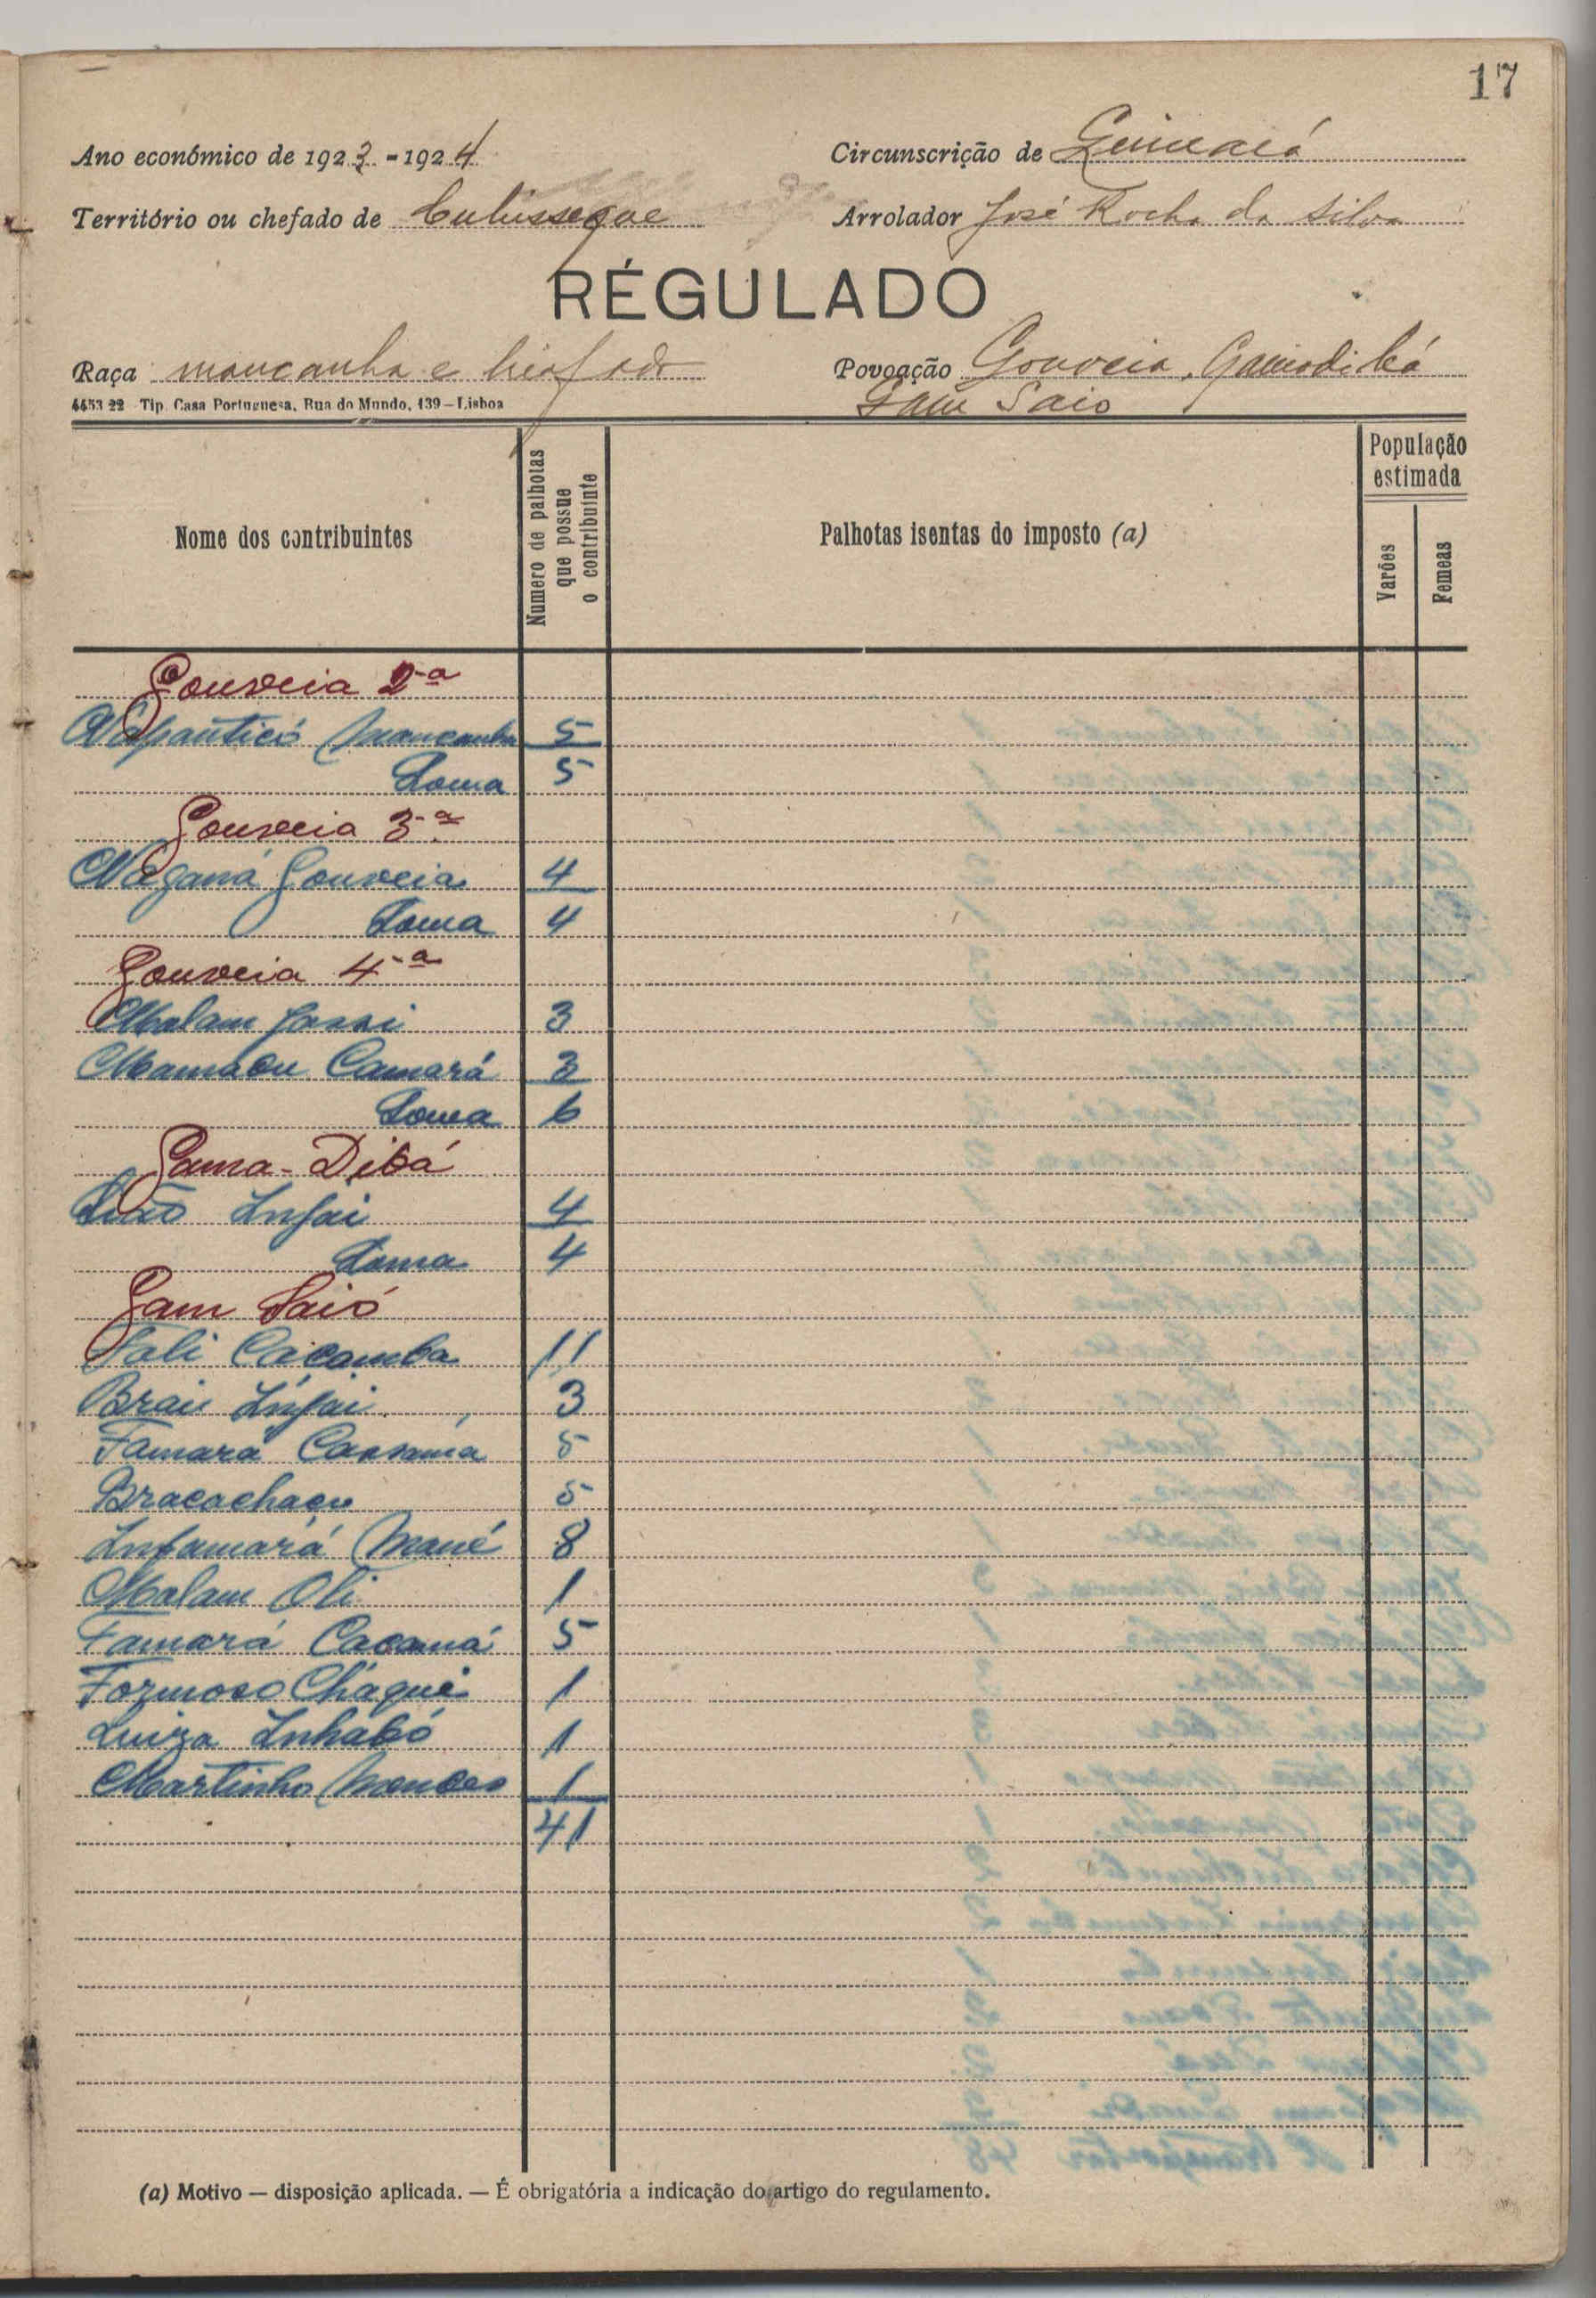 17
Ano económico de 1923-1924 Circunscrição de
Território ou chefado de Cubisseque Arrolador José Rocha da Silva
RÉGULADO
Raça mancanha e biafada Povoação Gouveia, Gamodibá
4453 22 Tip. Casa Portuguesa, Rua do Mundo, 139—Lisboa Gam Saió
Nome dos contribuintes
Numero de palhotas que possue o contribuinte
Palhotas isentas do imposto (a)
População estimada
Varões
Femeas
Gouveia 2-a
Mancanha 5
Soma 5
Gouveia 3-a
Naganá Gouveia 4
Soma 4
Gouveia 4-a
Malam Jassi 3
Mamadu Camará 3
Soma 6
Gama-Dibá
Infai 4
Soma 4
Gam Saió
Fali Caçamba 11
Braii Infai 3
Famará Cassamá 5
Bracachaçu 5
Infamará Mané 8
Malam Oli 1
Famará Caçamá 5
Formoso Cháque 1
Luiza Inhabó 1
Martinho Mendes 1
41
(a) Motivo — disposição aplicada. — É obrigatória a indicação do artigo do regulamento.